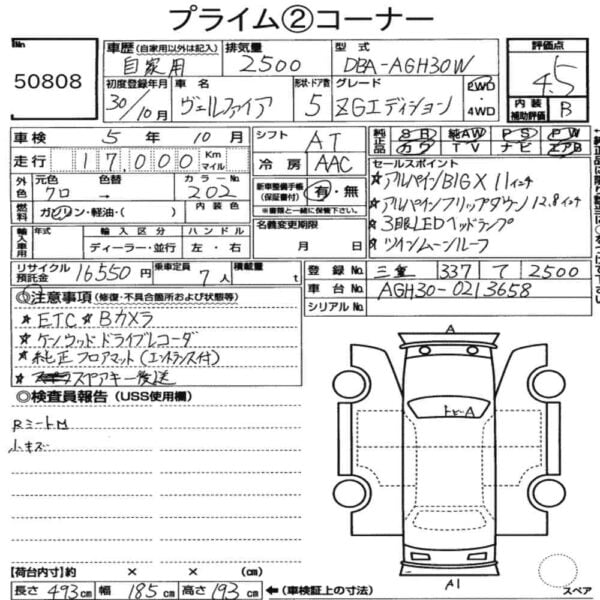 プライム②コーナー
No 50808
車歴(自家用以外は記入) 自家用
排気量 2500
型式 DBA-AGH30W
評価点 4.5
内装補助評価 B
初度登録年月 30/10月
車名 ヴェルファイア
形状・ドア数 5
グレード ZGエディション
2WD・4WD
車検 5年 10月
シフト AT
純正品 SR 純AW PS PW
カワ TV ナビ エアB
走行 17,000 Km マイル
冷房 AAC
セールスポイント
外色 元色 クロ → 色替
カラーNo 202
新車整備手帳(保証書付) 有・無
※書類と一緒に保管下さい。
★アルパインBIG X 11インチ
★アルパインフリップダウン 12.8インチ
★3眼LEDヘッドランプ
★ツインムーンルーフ
燃料 ガソリン・軽油・( )
内装色
輸入車用 年式 輸入区分 ハンドル
ディーラー・並行 左・右
名義変更期限 月 日
リサイクル預託金 16550円
乗車定員 7人
積載量 t
登録No 三重 337 て 2500
車台No AGH30-0213658
シリアルNo
◎注意事項(修復・不具合箇所および状態等)
★ETC ★Bカメラ
★ケンウッドドライブレコーダ
★純正フロアマット(エントランス付)
★スペアキー後送
◎検査員報告(USS使用欄)
Rミートム
小キズ
A
トビーA
A1
スペア
【荷台内寸】約 × × (cm)
長さ 493cm 幅 185cm 高さ 193cm ←(車検証上の寸法)